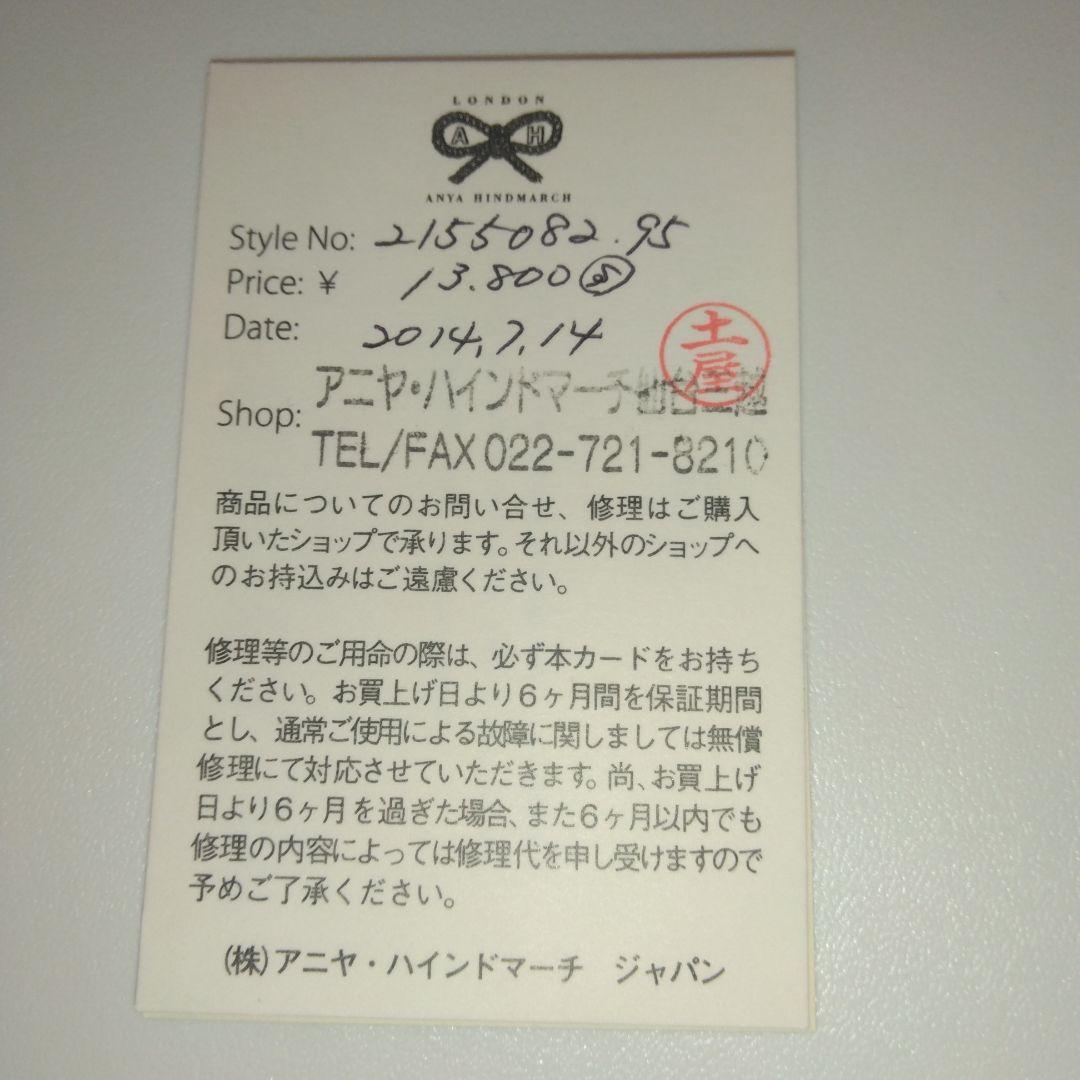 LONDON
A H
ANYA HINDMARCH
Style No: 2155082.95
Price: ¥ 13.800
Date: 2014,7,14
土屋
Shop: アニヤ・ハインドマーチ仙台三越
TEL/FAX 022-721-8210
商品についてのお問い合せ、修理はご購入
頂いたショップで承ります。それ以外のショップへ
のお持込みはご遠慮ください。
修理等のご用命の際は、必ず本カードをお持ち
ください。お買上げ日より6ヶ月間を保証期間
とし、通常ご使用による故障に関しましては無償
修理にて対応させていただきます。尚、お買上げ
日より6ヶ月を過ぎた場合、また6ヶ月以内でも
修理の内容によっては修理代を申し受けますので
予めご了承ください。
(株)アニヤ・ハインドマーチ　ジャパン